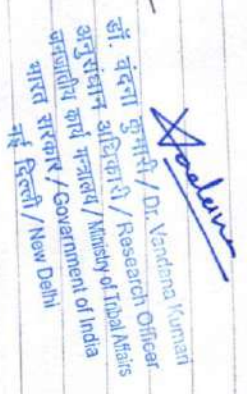 डॉ. वंदना कुमारी / Dr. Vandana Kumari
अनुसंधान अधिकारी / Research Officer
जनजातीय कार्य मंत्रालय / Ministry of Tribal Affairs
भारत सरकार / Government of India
नई दिल्ली / New Delhi